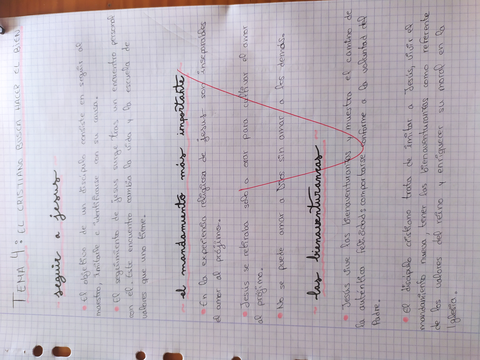 TEMA 4: EL CRISTIANO BUSCA HACER EL BIEN
seguir a jesus
El objetivo de un discípulo consiste en seguir al
maestro, imitarle e identificarse con su causa.
El seguimiento de jesus surge tras un encuentro personal
con él. Este encuentro cambia la vida y la escuela de
valores que uno tiene.
el mandamiento más importante
En la experiencia religiosa de jesus son inseparables
el amor al prójimo.
Jesus se retiraba solo a orar para cultivar el amor
al prójimo.
No se puede amar a Dios sin amar a los demás.
las bienaventuranzas
Jesus vive las bienaventuranzas y muestra el camino de
la autentica felicidad: comportarse conforme a la voluntad del
Padre.
El discípulo cristiano trata de imitar a Jesús, vivir el
mandamiento nuevo, tener las bienaventuranzas como referente
de los valores del reino y enriquecer su moral en la
Iglesia.